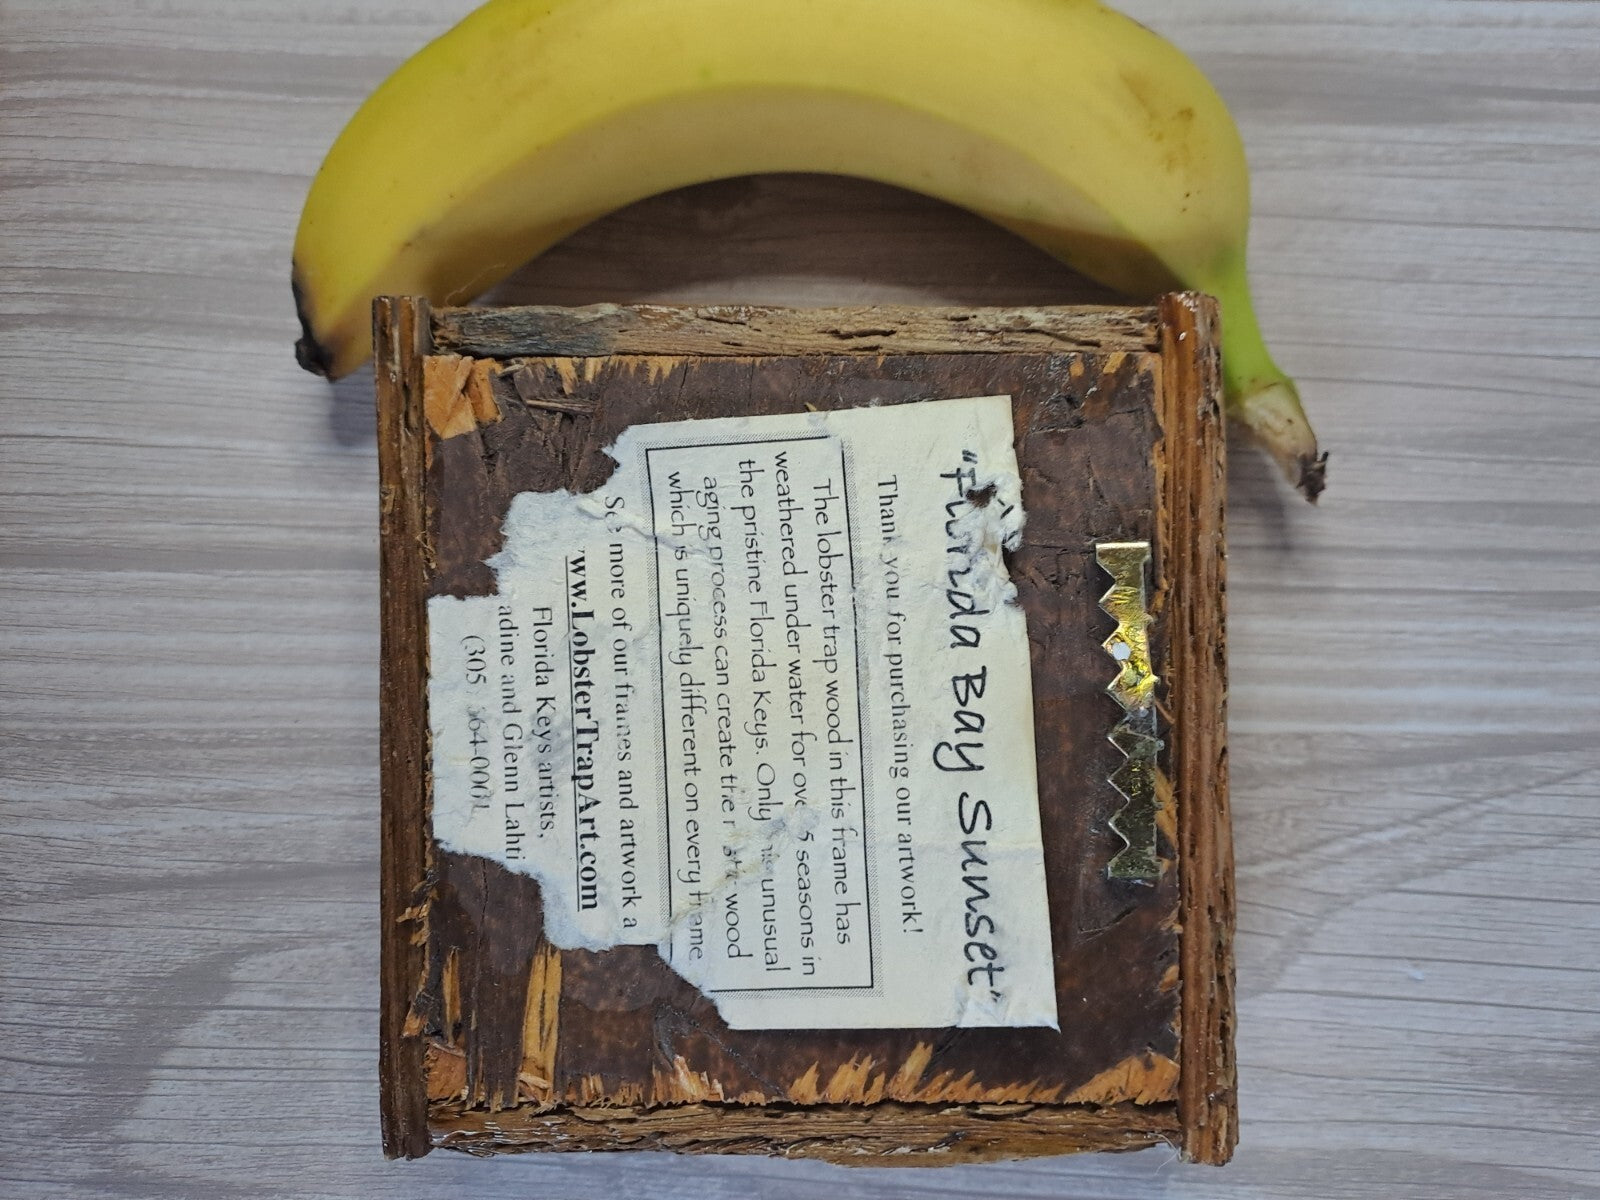 "Florida Bay Sunset"
Thank you for purchasing our artwork!
The lobster trap wood in this frame has
weathered under water for over 5 seasons in
the pristine Florida Keys. Only unusual
aging process can create the wood
which is uniquely different on every frame.
See more of our frames and artwork a
ww.LobsterTrapArt.com
Florida Keys artists,
adine and Glenn Lahti
(305 664-0001